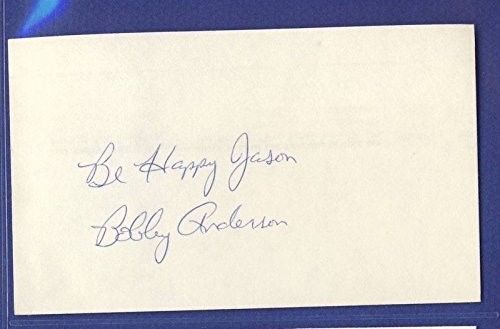 Be Happy Jason
Bobby Anderson